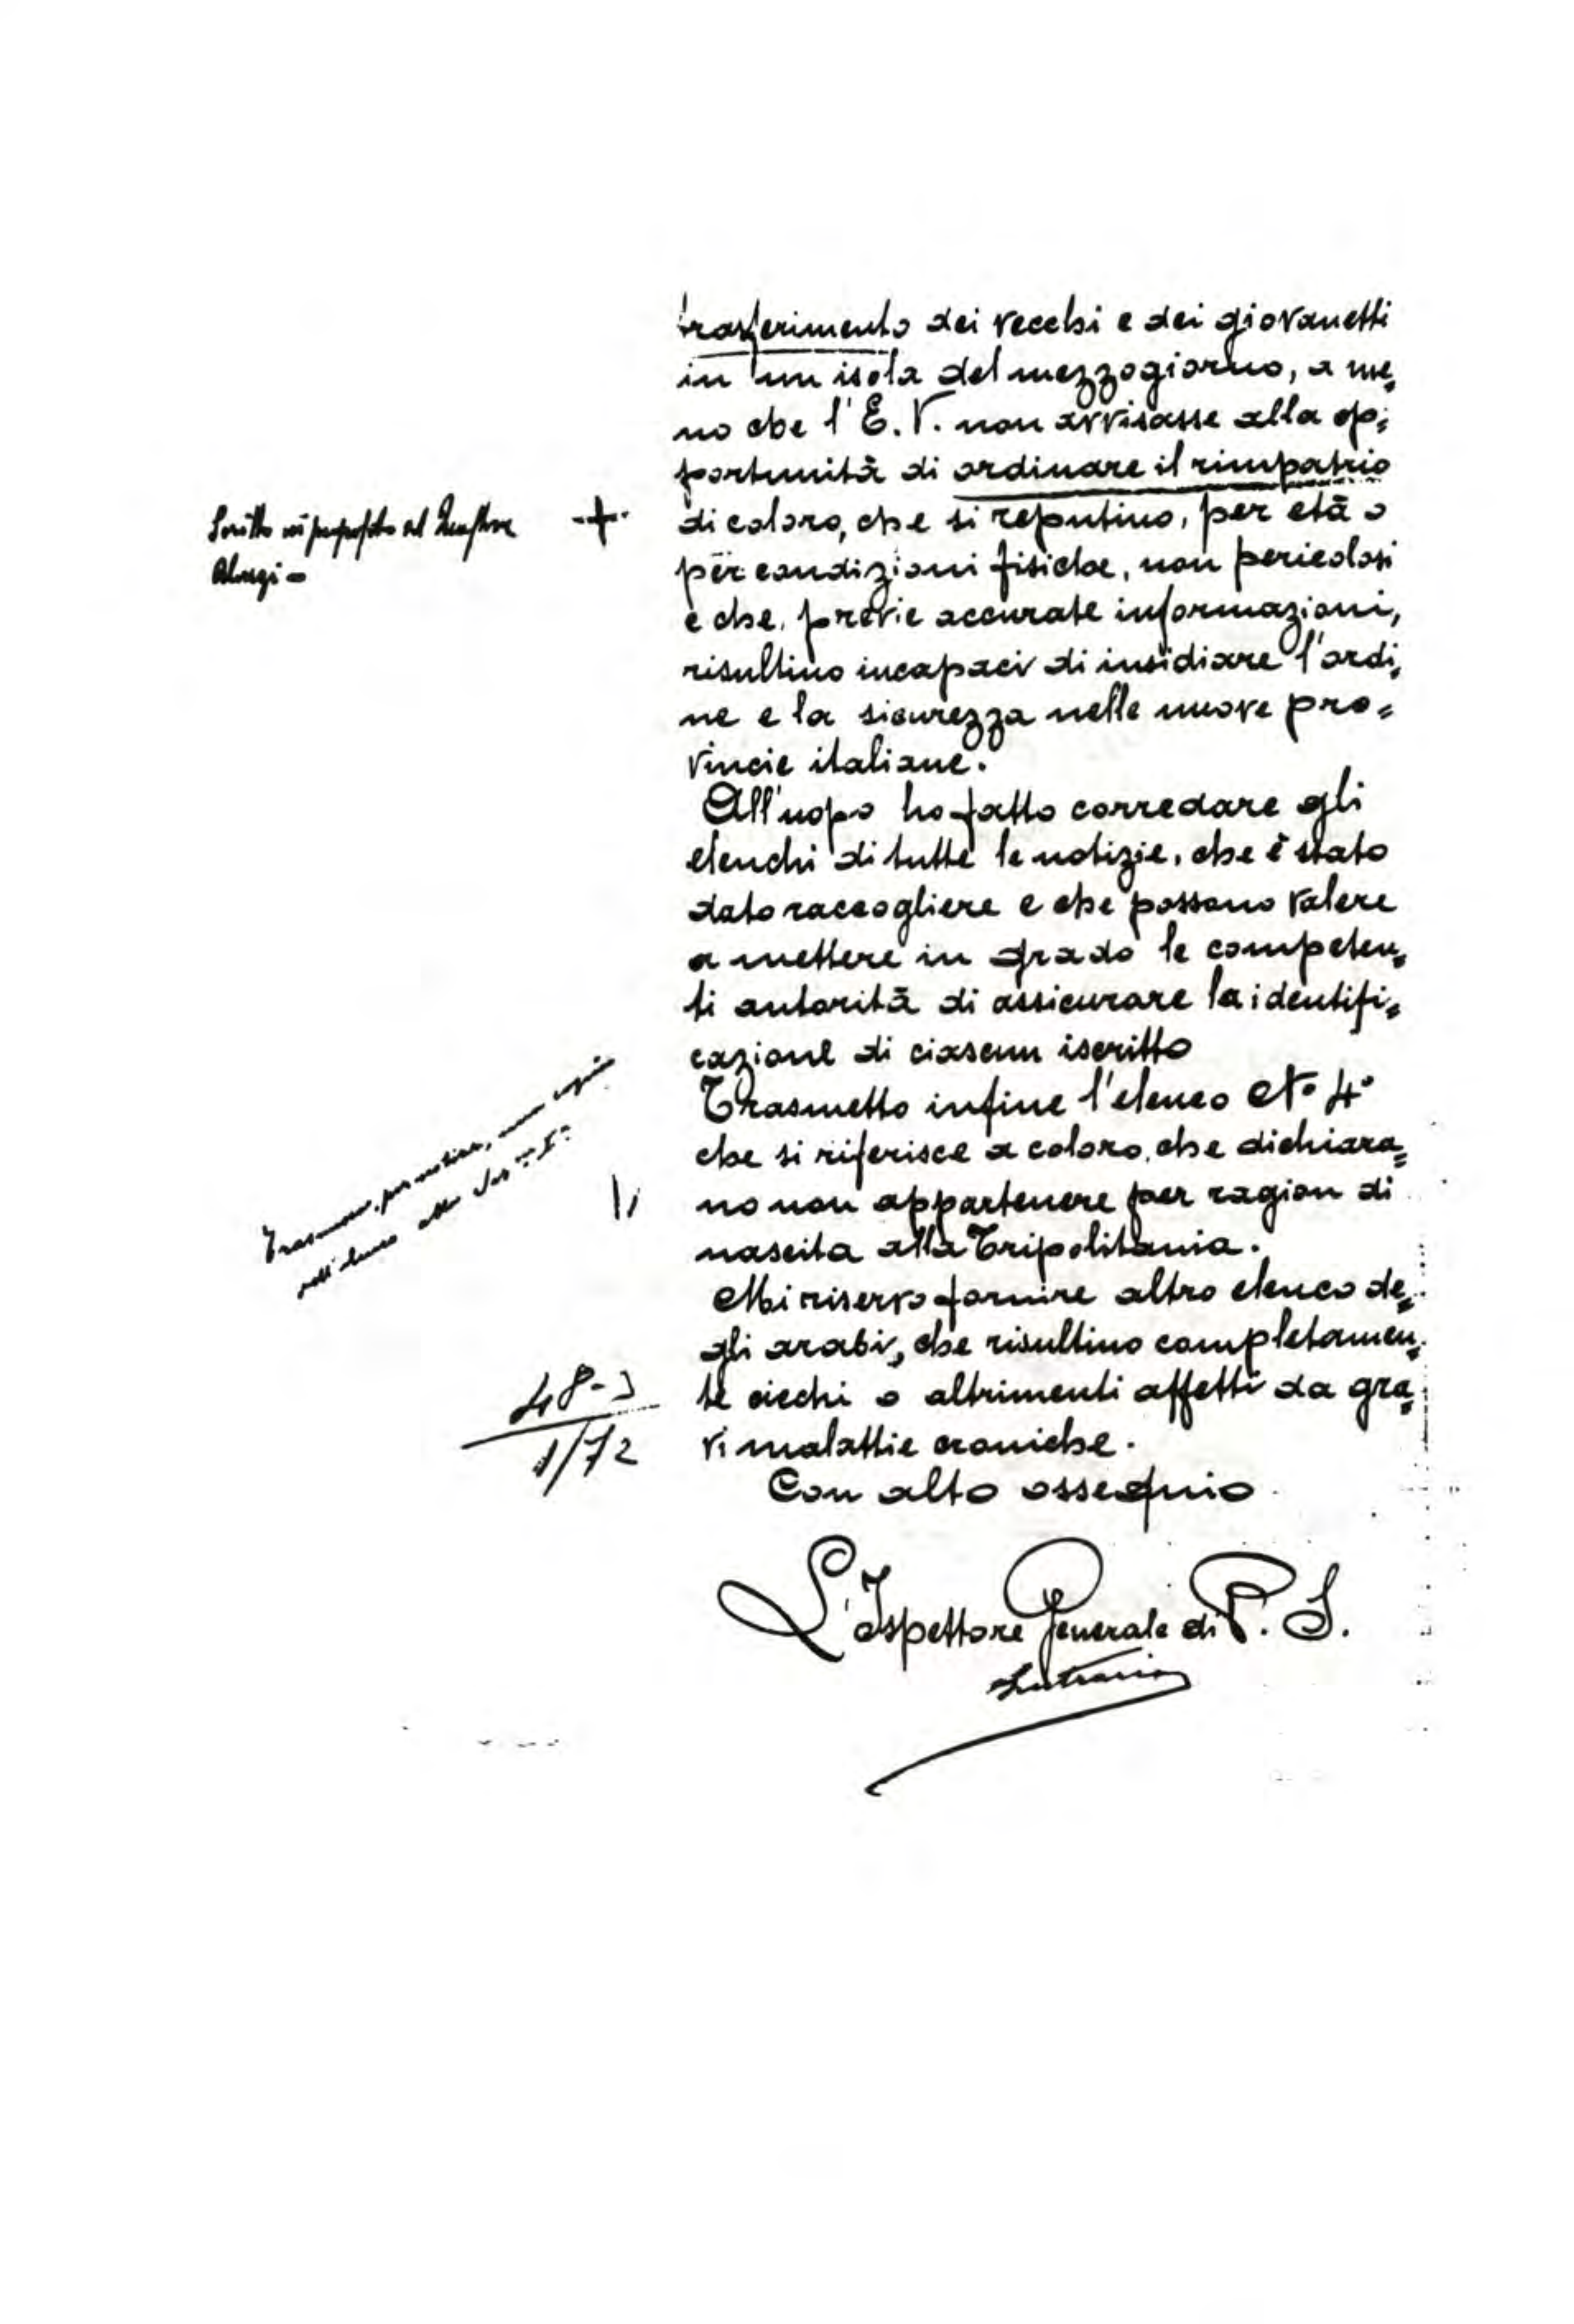 trasferimento dei vecchi e dei giovanetti
in un isola del mezzogiorno, a me=
no che l'E.V. non avvisasse alla op=
portunità di ordinare il rimpatrio
di coloro, che si reputino, per età o
per condizioni fisiche, non pericolosi
e che, previe accurate informazioni,
risultino incapaci di insidiare l'ordi=
ne e la sicurezza nelle nuove pro=
vincie italiane.
All'uopo ho fatto corredare gli
elenchi di tutte le notizie, che è stato
dato raccogliere e che possono valere
a mettere in grado le competen=
ti autorità di assicurare la identifi=
cazione di ciascun iscritto
Trasmetto infine l'elenco N° 4°
che si riferisce a coloro, che dichiara=
no non appartenere per ragion di
nascita alla Tripolitania.
Mi riservo fornire altro elenco de=
gli arabi, che risultino completamen=
te ciechi o altrimenti affetti da gra=
vi malattie croniche.
Con alto ossequio
L'Ispettore Generale di P. S.
Scritto in proposito al Questore +
per notizia, una copia
dell'elenco alla
48-3
1/72